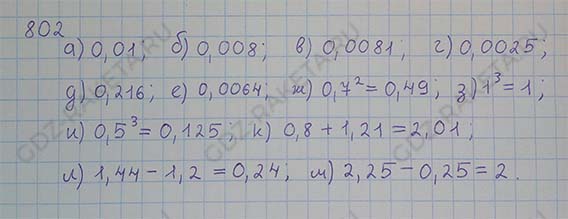 802
а) 0,01; б) 0,008; в) 0,0081 г) 0,0025;
д) 0,216; е) 0,0064; ж) 0,7² = 0,49; з) 1³ = 1;
и) 0,5³ = 0,125; к) 0,8 + 1,21 = 2,01;
л) 1,44 - 1,2 = 0,24; м) 2,25 - 0,25 = 2.
GDZ-RAKETA.RU